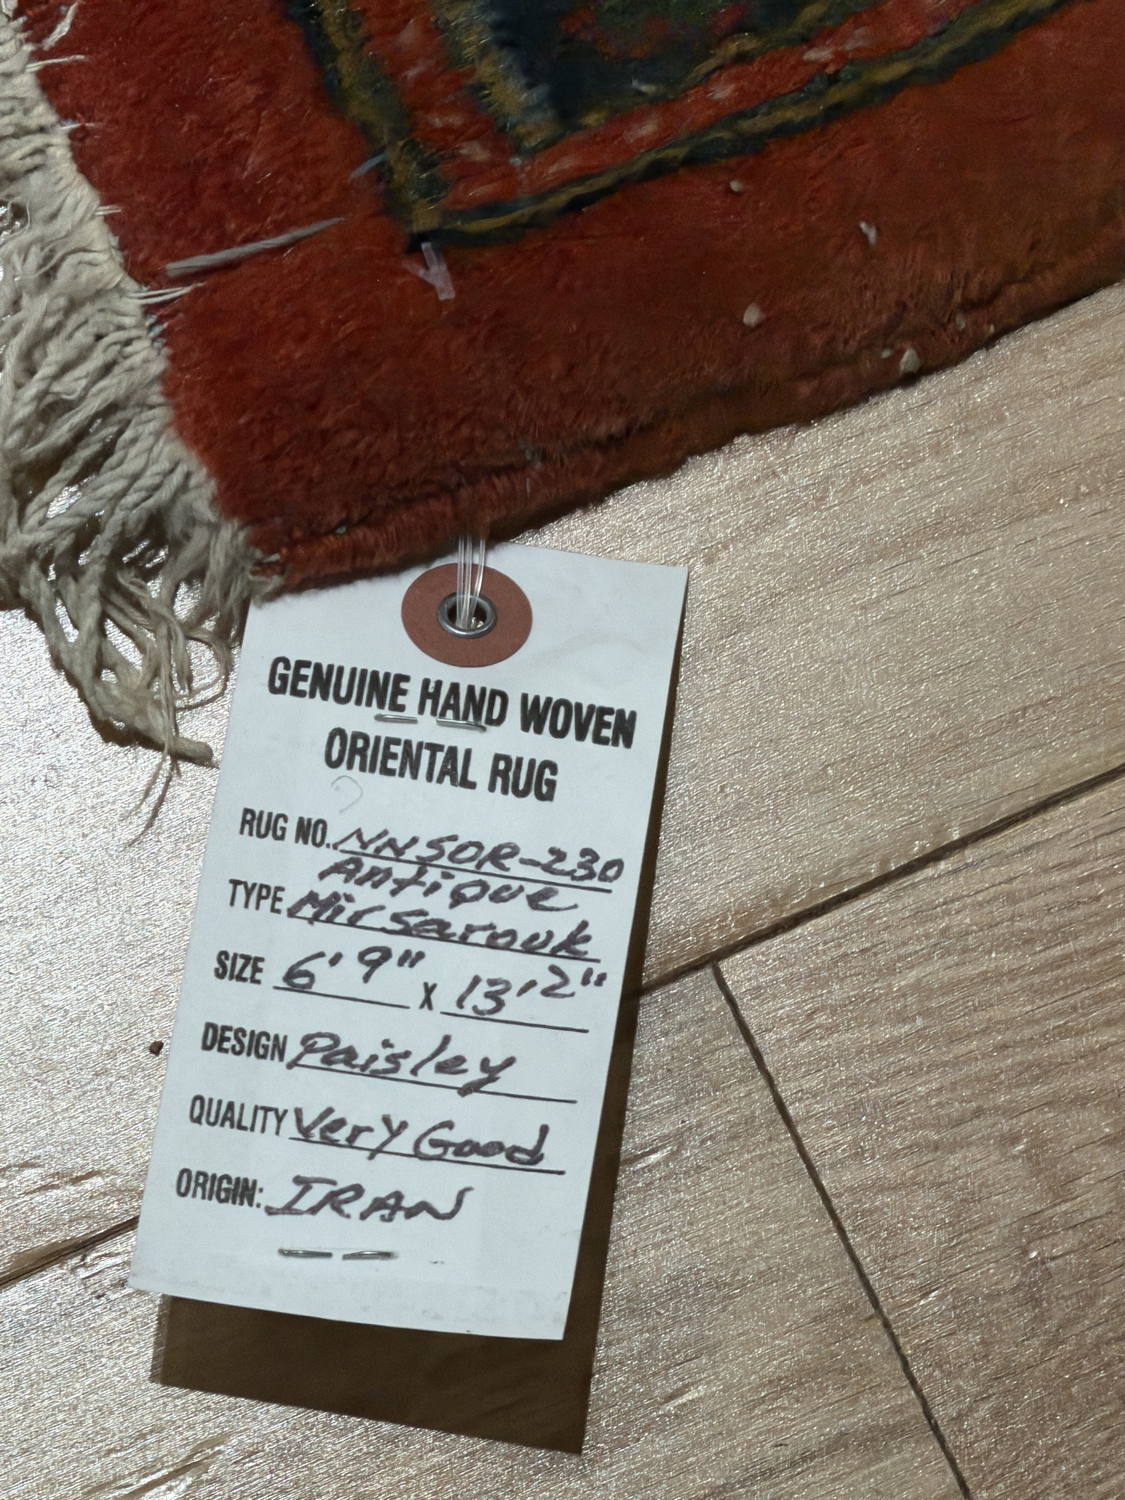 GENUINE HAND WOVEN
ORIENTAL RUG
RUG NO. NNSOR-230
Antique
TYPE Mir Sarouk
SIZE 6'9" X 13'2"
DESIGN Paisley
QUALITY Very Good
ORIGIN: IRAN